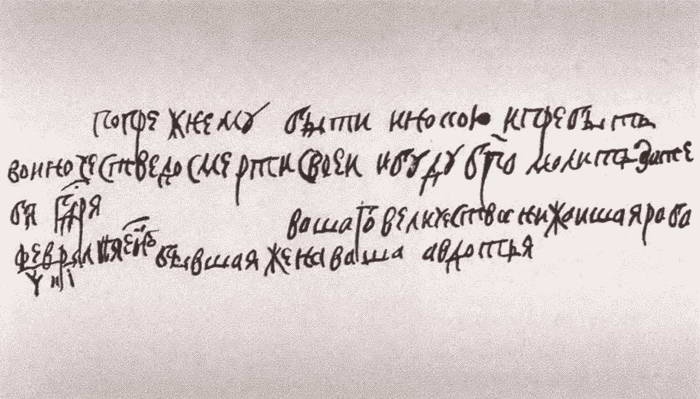 попрежнему быти инокою ипребыть
воиночествѣдосмерти своеи ибуду бга молить зате
бя гдря
вашего величества нижаишая раба
февраля
бывшая жена ваша авдотья